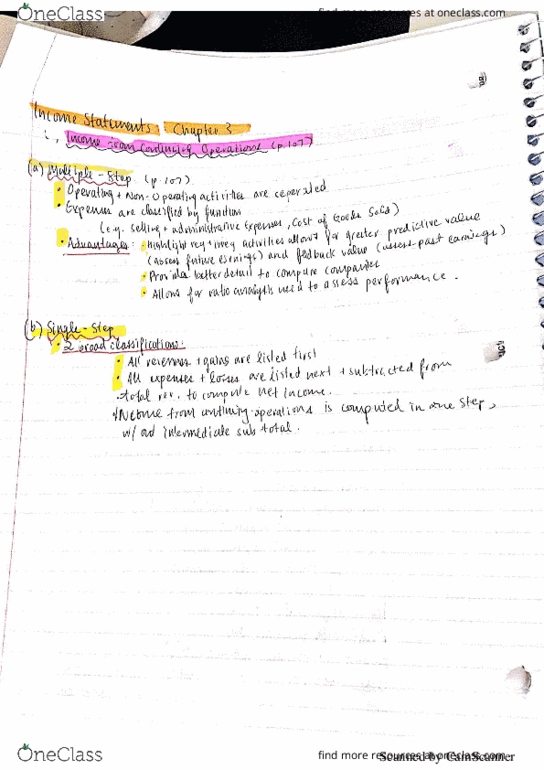 OneClass
find more resources at oneclass.com
Income Statements: Chapter 3
Income from Operations (p.107)
(a) Multiple-Step (p.107)
• Operating + Non-Operating activities are seperated
• Expenses are classified by function
(e.g. selling + administrative Expenses, Cost of Goods Sold)
• Advantages: • Highlight reg + irreg activities allows for greater predictive value
(assess future earnings) and feedback value (assess past earnings)
• Provides better detail to compare companies
• Allows for ratio analysis used to assess performance.
(b) Single-Step
• 2 broad classifications:
• All revenues + gains are listed first
• All expenses + losses are listed next + subtracted from
total rev. to compute net income.
Income from operations is computed in one step,
w/ intermediate sub total.
OneClass
find more resources at oneclass.com
Scanned by CamScanner